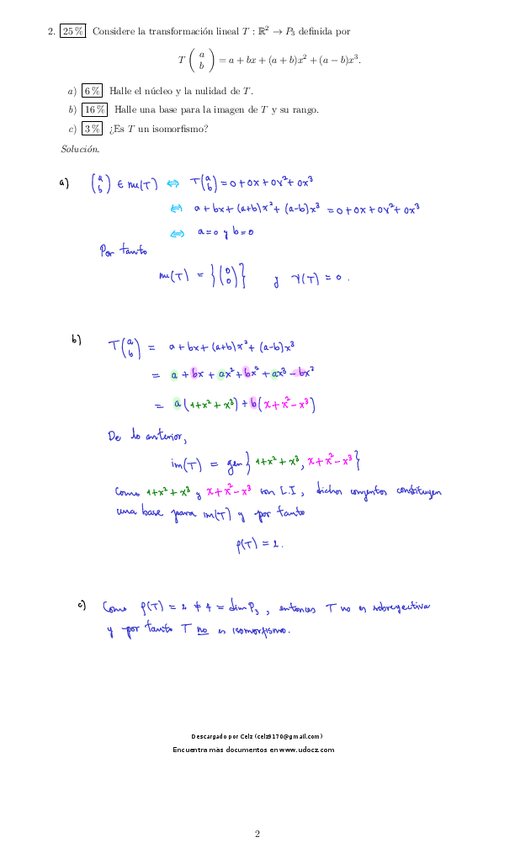 2. 25 % Considere la transformación lineal T : ℝ² → P₃ definida por
T ( a b ) = a + bx + (a + b)x² + (a − b)x³.
a) 6 % Halle el núcleo y la nulidad de T.
b) 16 % Halle una base para la imagen de T y su rango.
c) 3 % ¿Es T un isomorfismo?
Solución.
a) (a b) ∈ nu(T) ⇔ T(a b) = 0 + 0x + 0x² + 0x³
⇔ a + bx + (a+b)x² + (a-b)x³ = 0 + 0x + 0x² + 0x³
⇔ a=0 y b=0
Por tanto
nu(T) = {(0 0)} y ν(T) = 0.
b) T(a b) = a + bx + (a+b)x² + (a-b)x³
= a + bx + ax² + bx² + ax³ - bx³
= a(1+x²+x³) + b(x+x²-x³)
De lo anterior,
im(T) = gen{1+x²+x³, x+x²-x³}
Como 1+x²+x³ y x+x²-x³ son L.I, dichos conjuntos constituyen
una base para im(T) y por tanto
ρ(T) = 2.
c) Como ρ(T) = 2 ≠ 4 = dim P₃, entonces T no es sobreyectiva
y por tanto T no es isomorfismo.
Descargado por Celz (celz9170@gmail.com)
Encuentra más documentos en www.udocz.com
2